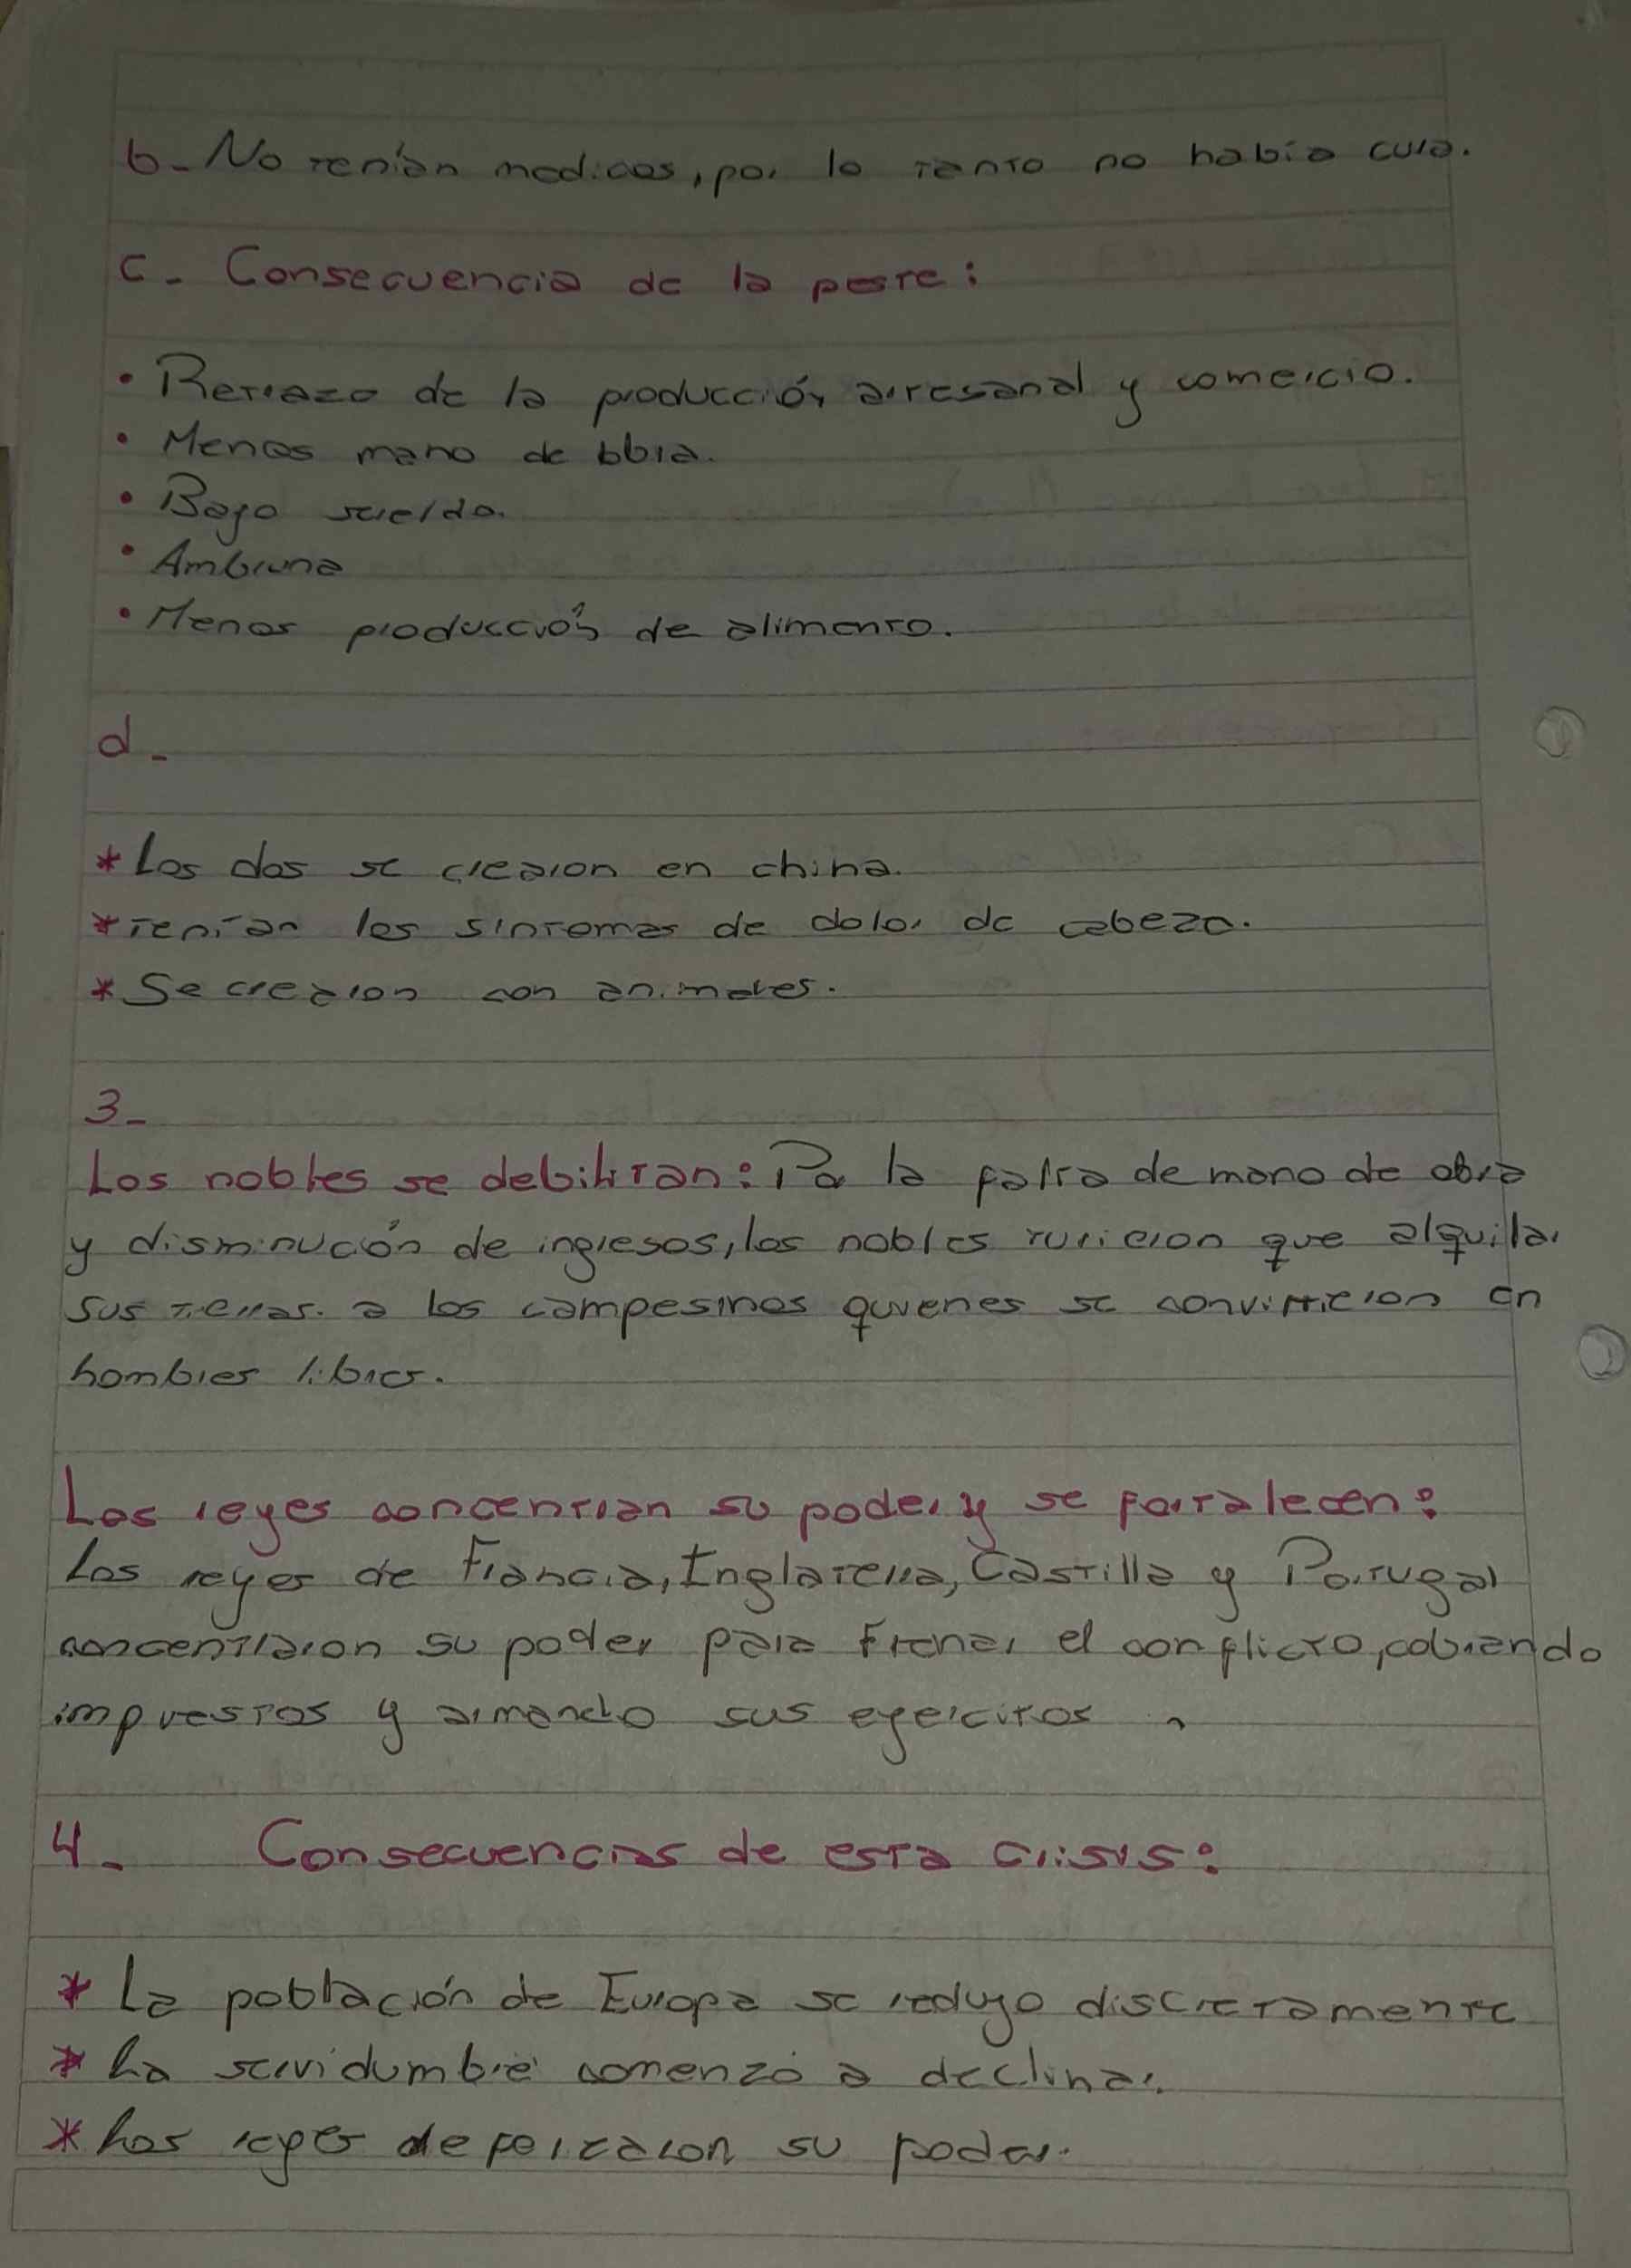 b- No tenían medicos, por lo tanto no había cura.
c- Consecuencia de la peste:
• Retrazo de la producción artesanal y comercio.
• Menos mano de obra.
• Bajo sueldo.
• Ambruna
• Menos producción de alimento.
d-
* Los dos se crearon en china.
* tenían los sintomas de dolor de cabeza.
* Se crearon con animales.
3-
Los nobles se debilitan: Por la falta de mano de obra
y disminución de ingresos, los nobles tuvieron que alquilar
sus tierras. a los campesinos quienes se convirtieron en
hombres libres.
Los reyes concentran su poder y se fortalecen:
Los reyes de Francia, Inglaterra, Castilla y Portugal
concentraron su poder para frenar el conflicto, cobrando
impuestos y armando sus ejercitos.
4- Consecuencias de esta crisis:
* La población de Europa se redujo discretamente
* La servidumbre comenzó a declinar.
* Los reyes su poder.